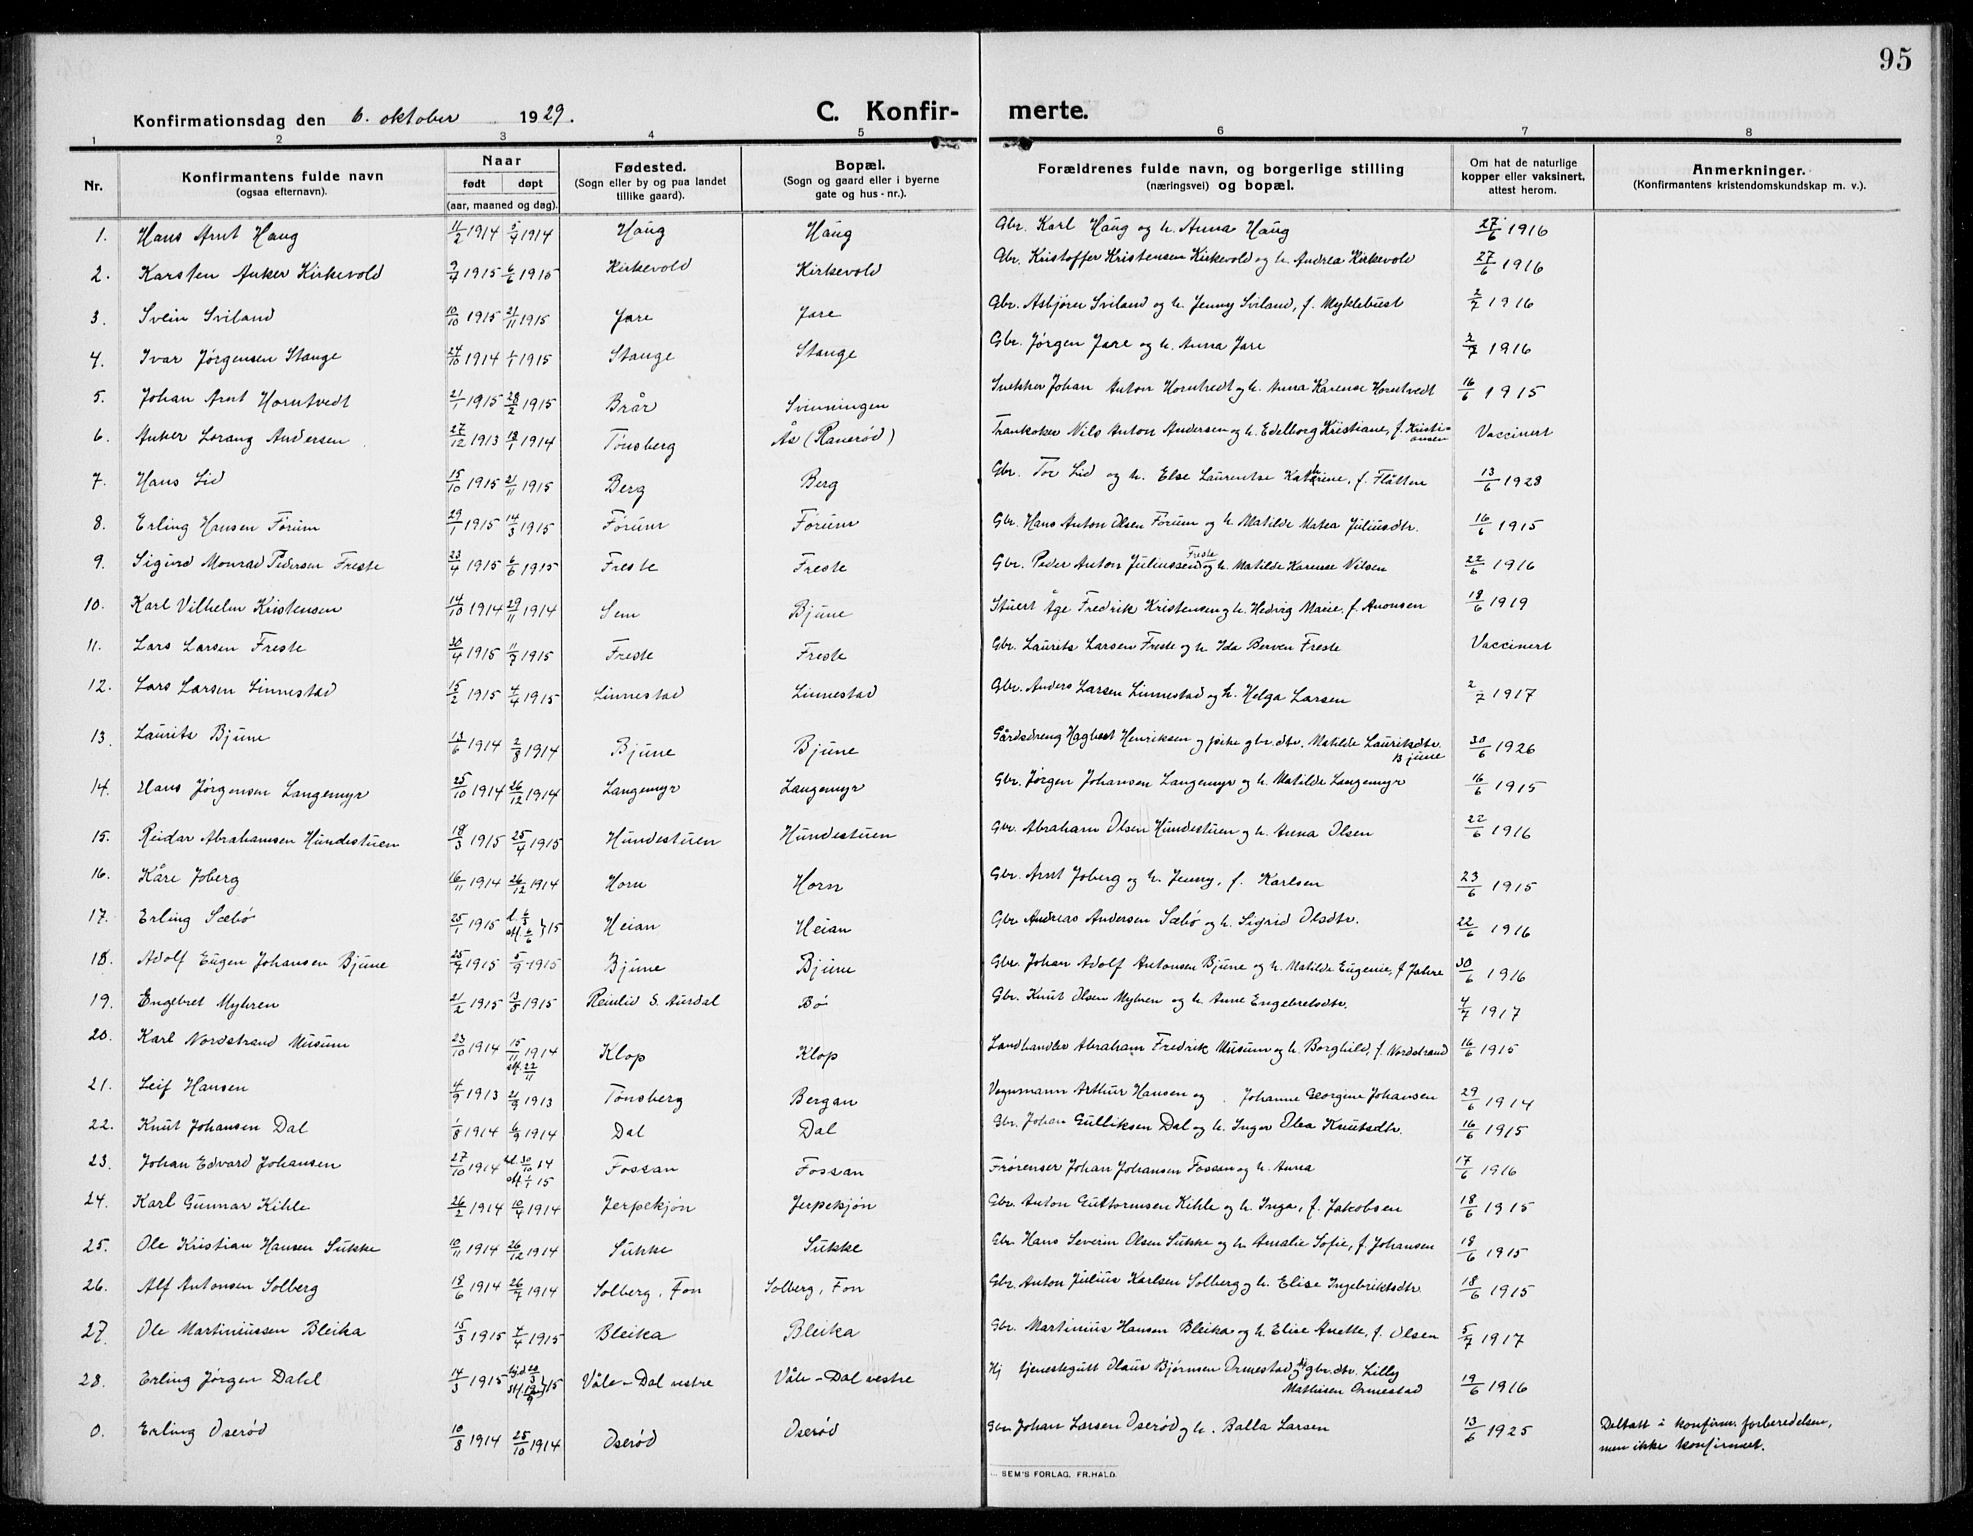 95
Konfirmationsdag den 6. oktober 1929. C. Konfir- merte.
1 2 3 4 5 6 7 8
Nr. Konfirmantens fulde navn (ogsaa efternavn). Naar født døpt (aar, maaned og dag). Fødested. (Sogn eller by og paa landet tillike gaard). Bopæl. (Sogn og gaard eller i byerne gate og hus-nr.). Forældrenes fulde navn, og borgerlige stilling (næringsvei) og bopæl. Om hat de naturlige kopper eller vaksinert, attest herom. Anmerkninger. (Konfirmantens kristendomskundskap m. v.).
1. Hans Arnt Haug 11/2 1914 5/4 1914 Haug Haug Gbr. Karl Haug og h. Anna Haug 27/6 1916
2. Karsten Anker Kirkevold 9/4 1915 6/6 1915 Kirkevold Kirkevold Gbr. Kristoffer Kristensen Kirkevold og h. Andrea Kirkevold 27/6 1916
3. Svein Sviland 10/10 1915 21/11 1915 Jare Jare Gbr. Asbjørn Sviland og h. Jenny Sviland, f. Myklebust 2/7 1916
4. Ivar Jørgensen Stange 24/10 1914 1/1 1915 Stange Stange Gbr. Jørgen Jare og h. Anna Jare 2/7 1916
5. Johan Arnt Horntvedt 21/1 1915 28/2 1915 Brår Svinningen Snekker Johan Anton Horntvedt og h. Anna Karense Horntvedt 16/6 1915
6. Anker Lorang Andersen 27/12 1913 18/1 1914 Tønsberg Ås (Ranerød) Trankoker Nils Anton Andersen og h. Edelborg Kristiane, f. Kristiansen Vaccinert
7. Hans Lid 15/10 1915 21/11 1915 Berg Berg Gbr. Tor Lid og h. Else Laurentse Kathrine, f. Flåtten 13/6 1928
8. Erling Hansen Førum 29/1 1915 14/3 1915 Førum Førum Gbr. Hans Anton Olsen Førum og h. Matilde Matea Juliusdtr. 16/6 1915
9. Sigurd Monrad Pedersen Freste 23/4 1915 6/6 1915 Freste Freste Gbr. Peder Anton Juliussen Freste og h. Matilde Karense Nilsen 22/6 1916
10. Karl Vilhelm Kristensen 14/10 1914 29/11 1914 Sem Bjune Stuert Åge Fredrik Kristensen og h. Hedvig Marie, f. Aronsen 18/6 1919
11. Lars Larsen Freste 30/4 1915 11/7 1915 Freste Freste Gbr. Laurits Larsen Freste og h. Ida Berven Freste Vaccinert
12. Lars Larsen Linnestad 15/2 1915 4/4 1915 Linnestad Linnestad Gbr. Anders Larsen Linnestad og h. Helga Larsen 2/7 1917
13. Laurits Bjune 13/6 1914 2/8 1914 Bjune Bjune Gårdsdreng Hagbart Henriksen og pike gbr.dtr. Matilde Lauritsdtr. Bjune 30/6 1926
14. Hans Jørgensen Langemyr 25/10 1914 26/12 1914 Langemyr Langemyr Gbr. Jørgen Johansen Langemyr og h. Matilde Langemyr 16/6 1915
15. Reidar Abrahamsen Hundestuen 18/3 1915 25/4 1915 Hundestuen Hundestuen Gbr. Abraham Olsen Hundestuen og h. Anna Olsen 22/6 1916
16. Kåre Joberg 16/11 1914 26/12 1914 Horn Horn Gbr. Arnt Joberg og h. Jenny, f. Karlsen 23/6 1915
17. Erling Sæbø 25/1 1915 6/6 15 Heian Heian Gbr Andreas Andersen Sæbø og h. Sigrid Olsdtr. 22/6 1916
18. Adolf Eugen Johansen Bjune 25/7 1915 5/9 1915 Bjune Bjune Gbr. Johan Adolf Antonsen Bjune og h. Matilde Eugenie, f Jahre 30/6 1916
19. Engebret Myhren 21/2 1915 13/5 1915 Reinlid S. Aurdal Bø Gbr. Knut Olsen Myhren og h. Anne Engebretsdtr. 4/7 1917
20. Karl Nordstrand Musum 23/10 1914 15/11 1914 stf. 22/11 Klop Klop Landhandler Abraham Fredrik Musum og h. Borghild, f. Nordstrand 16/6 1915
21. Leif Hansen 4/9 1913 21/9 1913 Tønsberg Bergan Vognmann Arthur Hansen og Johanne Georgine Johansen 29/6 1914
22. Knut Johansen Dal 1/8 1914 6/9 1914 Dal Dal Gbr. Johan Gulliksen Dal og h. Inger Olea Knutsdtr. 16/6 1915
23. Johan Edvard Johansen 27/10 1914 30/10 14 stf. 1/1 15 Fossan Fossan Frørenser Johan Johansen Fossan og h. Anna 17/6 1916
24. Karl Gunnar Kihle 26/2 1914 10/4 1914 Jerpekjøn Jerpekjøn Gbr. Anton Guttormsen Kihle og h. Inga, f. Jakobsen 18/6 1915
25. Ole Kristian Hansen Sukke 10/11 1914 26/12 1914 Sukke Sukke Gbr Hans Severin Olsen Sukke og h. Amalie Sofie, f. Johansen 18/6 1915
26. Alf Antonsen Solberg 18/6 1914 26/7 1914 Solberg, Fon Solberg, Fon Gbr. Anton Julius Karlsen Solberg og h. Elise Ingebriktsdtr. 18/6 1915
27. Ole Martiniussen Bleika 15/3 1915 4/4 1915 Bleika Bleika Gbr. Martinius Hansen Bleika og h. Elise Anette, f. Olsen 5/7 1917
28. Erling Jørgen Dahl 14/3 1915 15 Våle - Dal vestre Våle - Dal vestre Hj tjenestegutt Olaus Bjørnsen Ormestad og gbr. dtr. Lilly Mathisen Ormestad 19/6 1916
0. Erling Oserød 10/8 1914 25/10 1914 Oserød Oserød Gbr Johan Larsen Oserød og h. Balla Larsen 13/6 1925 Deltatt i konfirm. forberedelsen, men ikke konfirmert.
SEM'S FORLAG. FR. HALD.